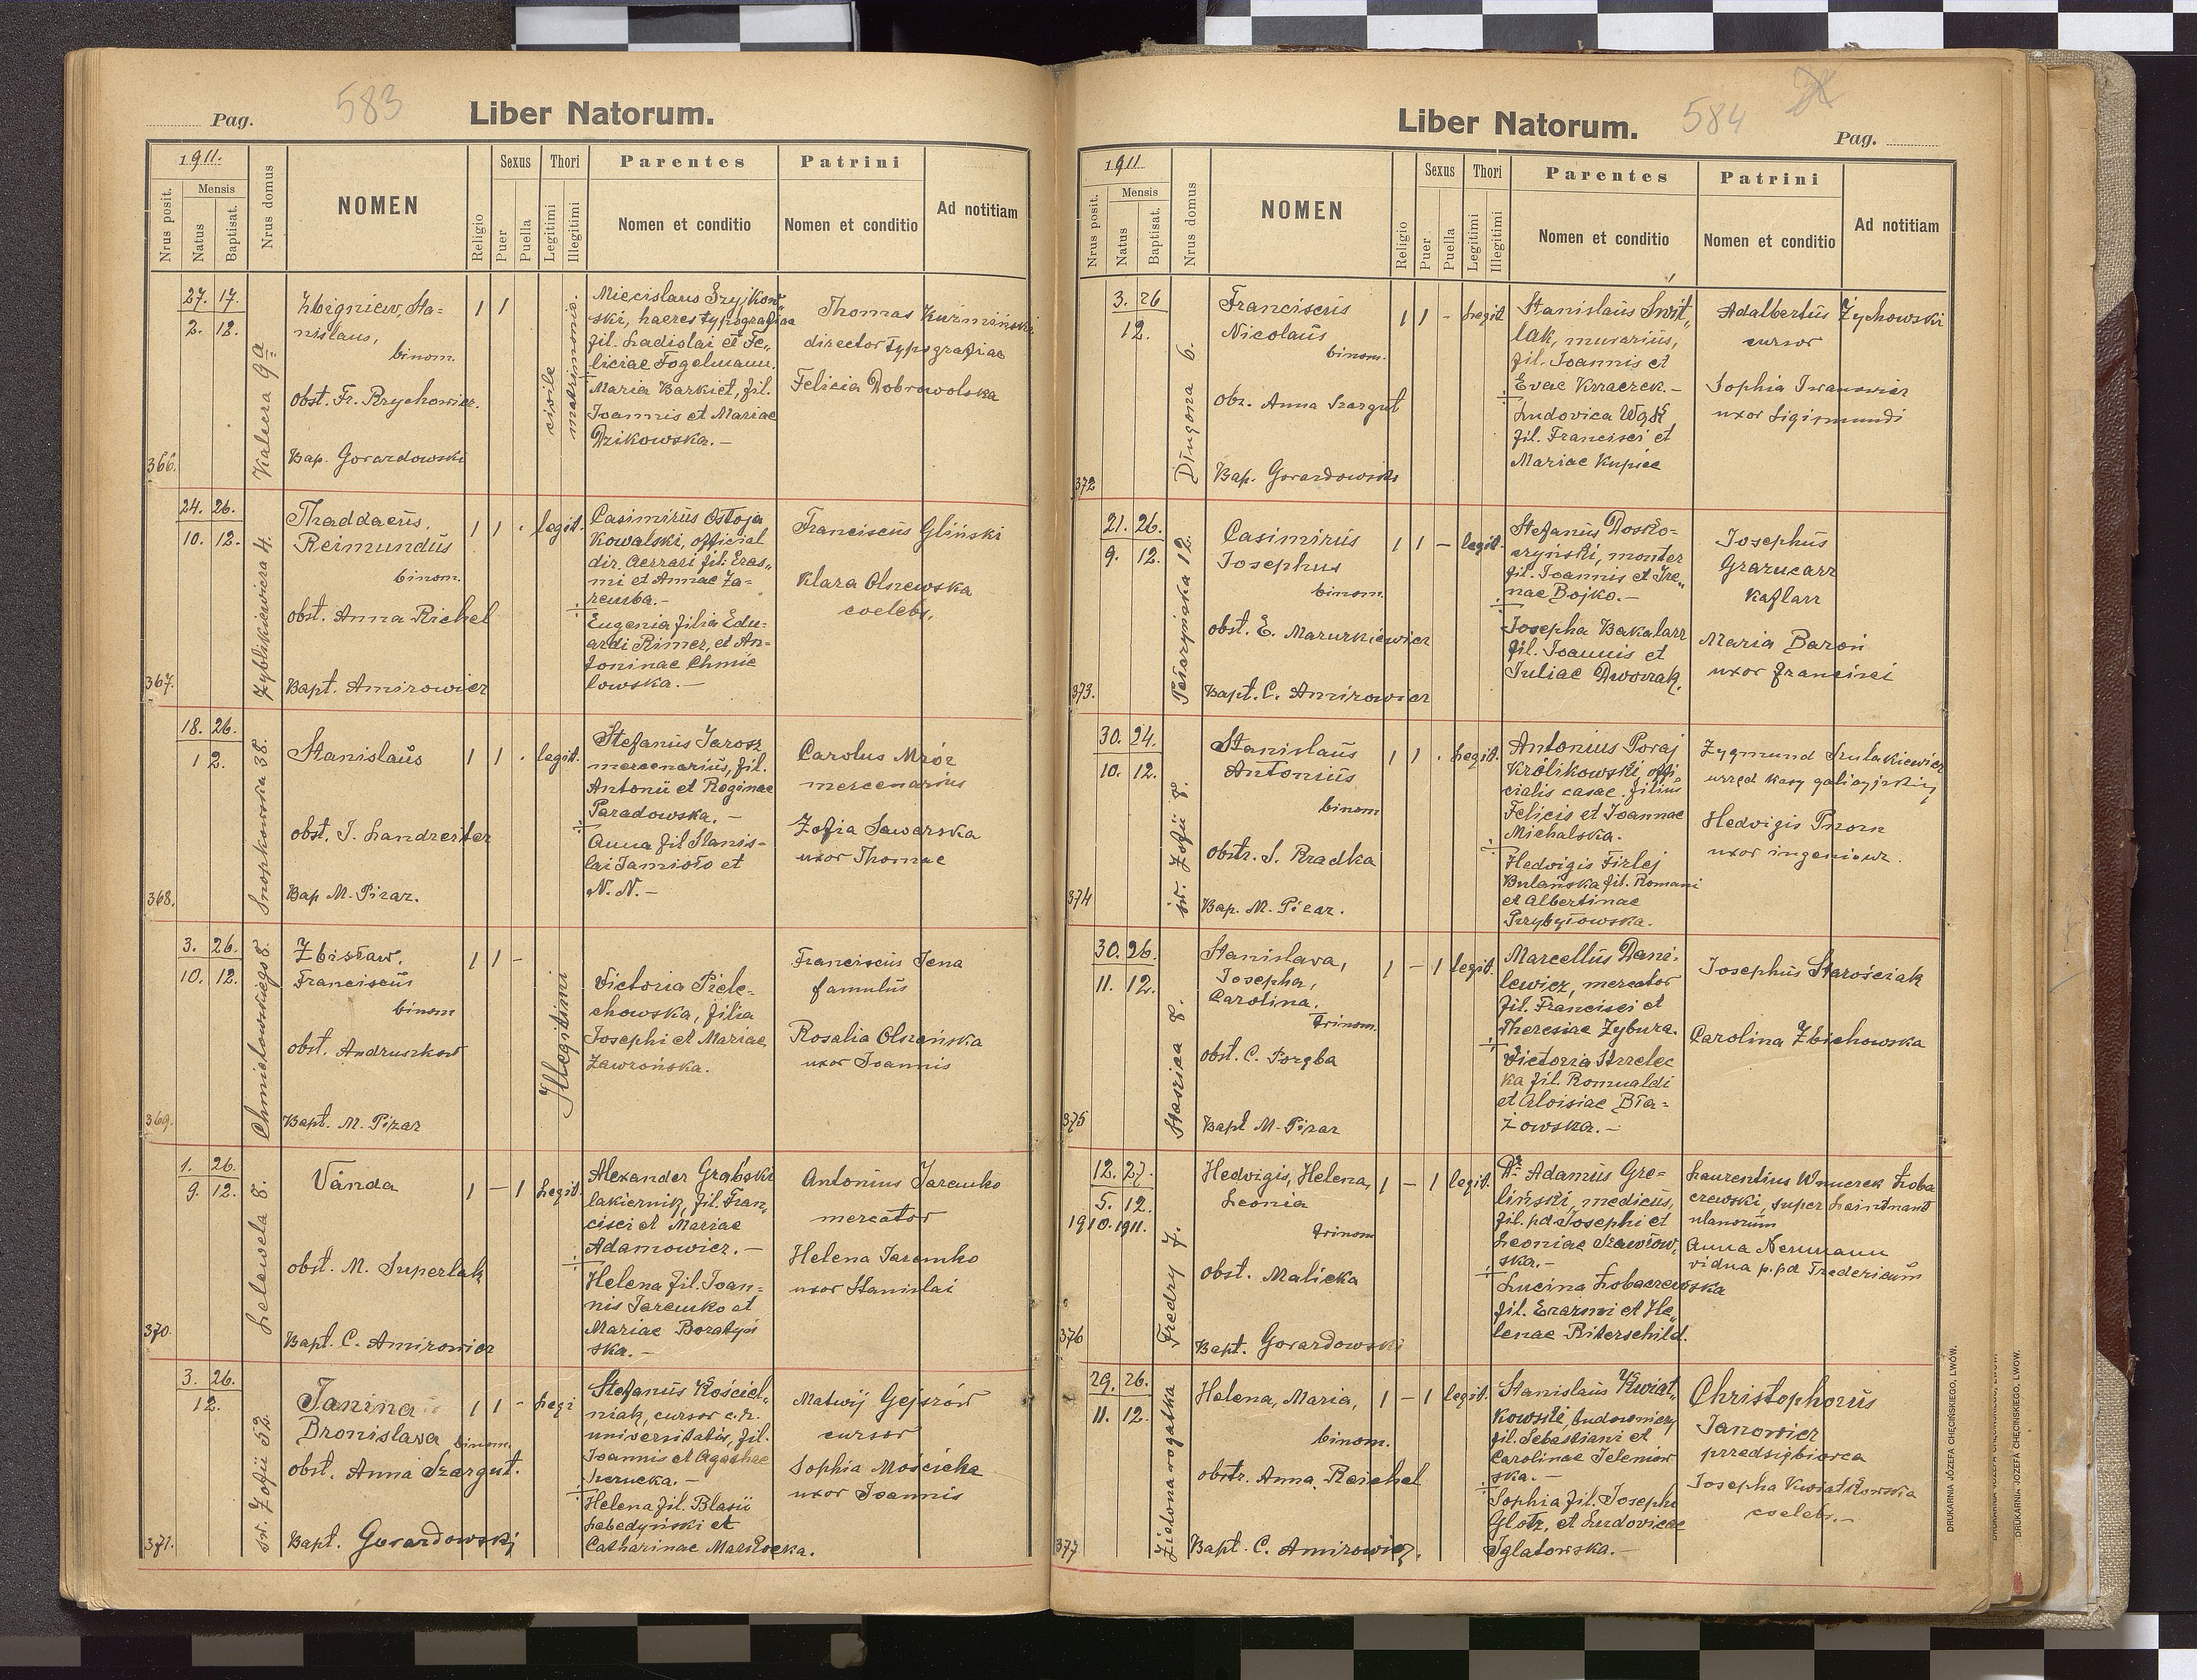 Pag.
583
Liber Natorum.
1911.
Nrus posit.
Mensis
Natus
Baptisat.
Nrus domus
NOMEN
Religio
Sexus
Puer
Puella
Thori
Legitimi
Illegitimi
Parentes
Nomen et conditio
Patrini
Nomen et conditio
Ad notitiam
366.
27. 17.
2. 12.
Kalecza 9 a
Zbigniew, Sta-
nislaus,
binom.
obst. Fr. Rzychowicz.
Bap. Gorazdowski
1 1
civile
matrimonio.
Miecislaus Szyjkow„
ski, haeres typografiae
fil. Ladislai et Fe„
liciae Fogelmann.
Maria Barkiet, fil.
Joannis et Mariae
Dzikowska. —
Thomas Kuźmiński
director typografiae
Felicia Dobrowolska
367.
24. 26.
10. 12.
Zyblikiewicza 4.
Thaddaeus.
Reimundus
binom.
obst. Anna Richel
Bapt. Amirowicz
1 1 . legit.
Casimirus Ostoja
Kowalski, official
dir. aerrari fil: Eras„
mi et Annae Za=
remba. —
Eugenia filia Edu=
ardi Rimer, et An=
toninae Chmie
lowska. —
Franciscus Gliński
Klara Olszewska
coelebs.
368.
18. 26.
12.
Snopkowska 38.
Stanislaus
obst. J. Landreiter
Bap M. Pizar.
1 1 . legit.
Stefanus Jarosz
mercenarius, fil.
Antonii et Reginae
Paradowska. —
Anna fil Stanis-
lai Jamioło et
N. N. —
Carolus Mróz
mercenarius
Zofia Sawarska
uxor Thomae
369.
3. 26.
10. 12.
Chmielowskiego 8.
Zbisław.
Franciscus
binom
obst. Andruszkow
Bapt. M. Pizar
1 1 -
Illegitimi
Victoria Piele-
chowska, filia
Josephi et Mariae
Zawrońska.
Franciscus Jena
famulus
Rosalia Olszańska
uxor Joannis
370.
1. 26.
9. 12.
Lelewela 8.
Vanda
obst. M. Superlak
Bapt. C. Amirowicz
1 - 1 Legit.
Alexander Grabski
lakiernik, fil. Fran„
cisci et Mariae
Adamowicz. —
Helena fil. Joan=
nis Jaremko et
Mariae Boratyń
ska. —
Antonius Jaremko
mercator
Helena Jaremko
uxor Stanislai
371.
3. 26.
12.
św. Zofii 52.
Janina
Bronislava binom.
obst. Anna Szargut.
Bapt. Gorazdowski
1 1 - Legi
Stefanus Kościel„
niak, cursor c.r.
universitatis, fil.
Joannis et Agathae
Helena fil. Blasii
Łebedyński et
Catharinae
Matwij Gejszów
cursor
Sophia Mościcka
uxor Joannis
Liber Natorum.
584
Pag.
1911
Nrus posit.
Mensis
Natus
Baptisat.
Nrus domus
NOMEN
Religio
Sexus
Puer
Puella
Thori
Legitimi
Illegitimi
Parentes
Nomen et conditio
Patrini
Nomen et conditio
Ad notitiam
372
3. 26
12.
6.
Franciscus
Nicolaus
binom.
obs. Anna Szargut
Bap. Gorazdowski
1 1 - Legit
Stanislaus Swit„
lak, murarius,
fil. Joannis et
Evae Kraczek. —
Ludovica Wąsik
fil. Francisci et
Mariae Kupiec
Adalbertus Żychowski
cursor
Sophia Iwanowicz
uxor Sigismundi
373.
21. 26.
9. 12.
12.
Casimirus
Josephus
binom.
obst. E. Mazurkiewicz
Bapt. C. Amirowicz
1 1 - legit.
Stefanus Dosko=
czyński, monter
fil. Joannis et Ire„
nae Bojko. —
Josepha Bakalarz
fil. Joannis et
Juliae Dworzak.
Josephus
Grażucarz
Kaflarz
Maria Baron
uxor Francisci
374
30. 24.
10. 12.
św. Zofii 8.
Stanislaus
Antonius
binom
obstr. S. Rzadka
Bap. M. Pizar.
1 1 . Legit.
Antonius Poraj
Królikowski, offi
cialis casae. filius
Felicis et Joannae
Michalska.
Hedvigis Firlej
Bulańska fil. Romani
et Albertinae
Przybyłowska.
Zygmund Szulakiewicz
urzęd Kasy galicyjskiej
Hedvigis Pszorn
uxor ingenieur.
375
30. 26.
11. 12.
Staszica 8.
Stanislava,
Josepha,
Carolina.
trinom.
obst. C. Poręba
Bapt M. Pizar
1 - 1 legit.
Marcellus Dani=
lewicz, mercator
fil. Francisci et
Theresiae Zybura.
Victoria Strzelec
ka fil. Romualdi
et Aloisiae Bła=
żowska. —
Josephus Starościak
Carolina Zbichowska
376
12. 27.
5. 12.
1910. 1911.
Fredry 7.
Hedvigis, Helena,
Leonia
trinom
obst. Malicka
Bapt. Gorazdowski
1 - 1 legit.
Dr Adamus Gre=
liński, medicus,
fil. pd Josephi et
Leoniae Szawłow„
ska. —
Lucina Łobaczewska
fil. Erazmi et He„
lenae Riterschild.
Laurentius Wnuczek Łoba
czewski, super Leindnant
ulanorum
Anna Nermann
vidua p. pd Fredericum
377
29. 26.
11. 12.
Zielona rogatka
Helena, Maria,
binom.
obstr. Anna Reichel
Bapt. C. Amirowicz.
1 - 1 legit.
Stanislaus Kwiat„
kowski, budowniczy
fil. Sebastiani et
Carolinae Zelenior
ska. —
Sophia fil. Josephi
Glotz, et Ludovicae
Iglatowska. —
Christophorus
Janowicz
przedsiębiorca
Josepha Kwiatkowska
coelebs. —
DRUKARNIA JÓZEFA CHĘCIŃSKIEGO, LWÓW.
DRUKARNIA JÓZEFA CHĘCIŃSKIEGO, LWÓW.
DRUKARNIA JÓZEFA CHĘCIŃSKIEGO, LWÓW.